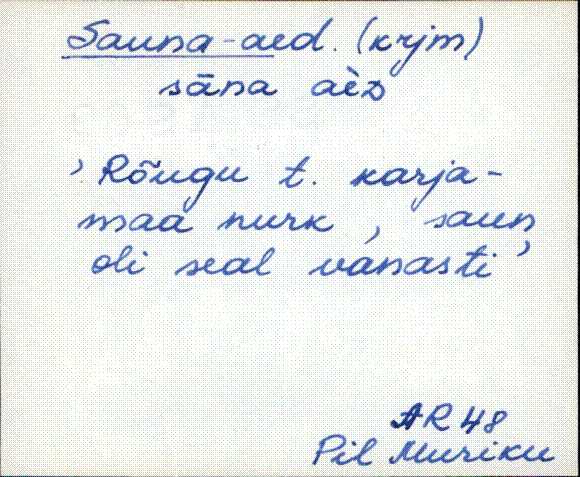 Sauna-aed. (krjm)
sāna aèD
' Rõugu t. karja-
maa nurk, saun
oli seal vanasti '
AR 48
Pil Muriku